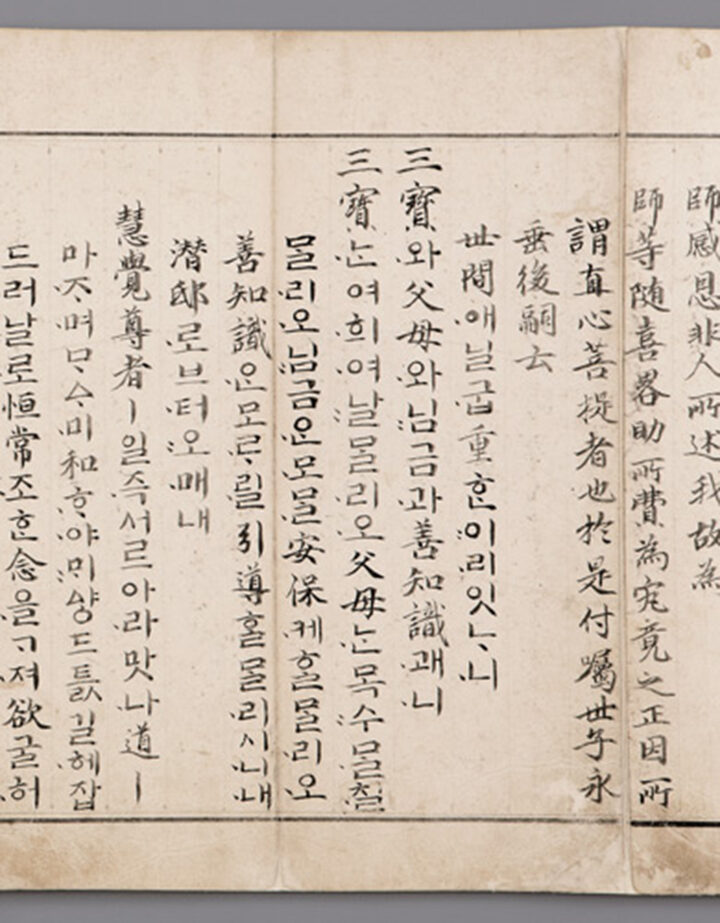 師感恩非人所述我故為
師等随喜畧助所費為究竟之正因所
謂直心菩提者也於是付囑世子永
垂後嗣云
世間애닐굽重ᄒᆞᆫ이리잇ᄂᆞ니
三寶와父母와님금과善知識괘니
三寶ᄂᆞᆫ여희여날ᄆᆞᆯ리오父母ᄂᆞᆫ목수믈칠
ᄆᆞᆯ리오님금은모ᄆᆞᆯ安保케ᄒᆞᆯᄆᆞᆯ리오
善知識은모ᄅᆞ릴引導ᄒᆞᆯᄆᆞᆯ리시니내
潛邸로브터오매내
慧覺尊者ㅣ일즉서르아라맛나道ㅣ
마ᄌᆞ며ᄆᆞᅀᆞ미和ᄒᆞ야ᄆᆡ샹드틄길헤잡
드러날로恒常조ᄒᆞᆫ念을ᄀᆞ져欲굴허